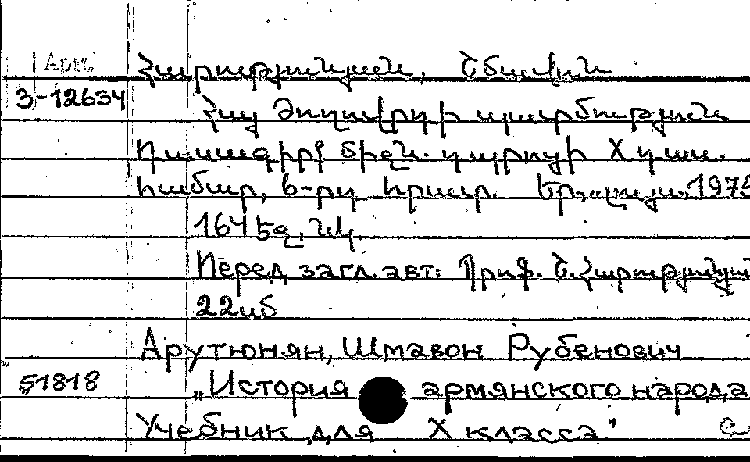 Арм.
Հարությունյան, Շմավոն
3-12634
Հայ ժողովրդի պատմություն
Դասագիրք միջն. դպրոցի X դաս.
համար, 6-րդ հրատ. Եր., 197
164 էջ, նկ.
Перед загл. авт.: Պրոֆ. Շ. Հարությունյան
22սմ
Арутюнян, Шмавон Рубенович
51818
„История армянского народа
Учебник для X класса"